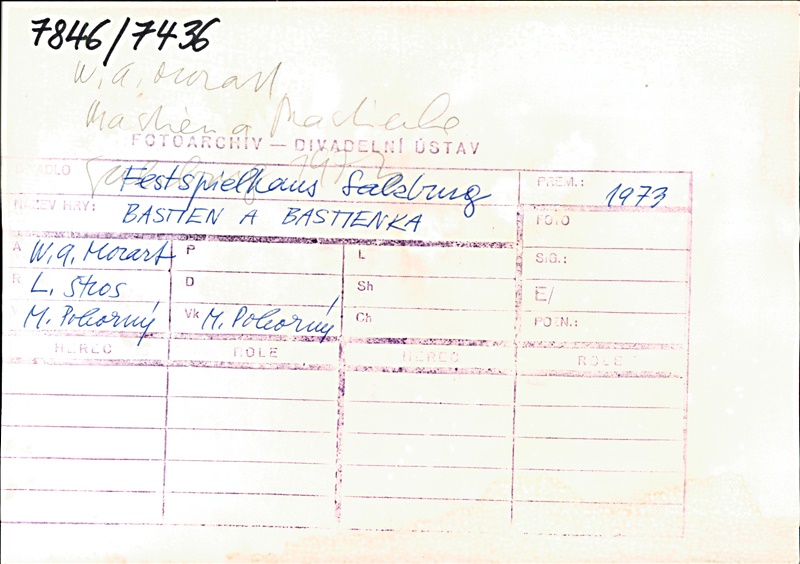 7846/7436
W. A. Mozart
Bastien a Bastienka
FOTOARCHIV — DIVADELNÍ ÚSTAV
Salzburg 1973
DIVADLO Festspielhaus Salzburg PREM.: 1973
NÁZEV HRY: BASTIEN A BASTIENKA FOTO
A W. A. Mozart P L SIG.:
R L. Stros D Sh E/
M. Pokorný Vk M. Pokorný Ch POZN.:
HEREC ROLE HEREC ROLE